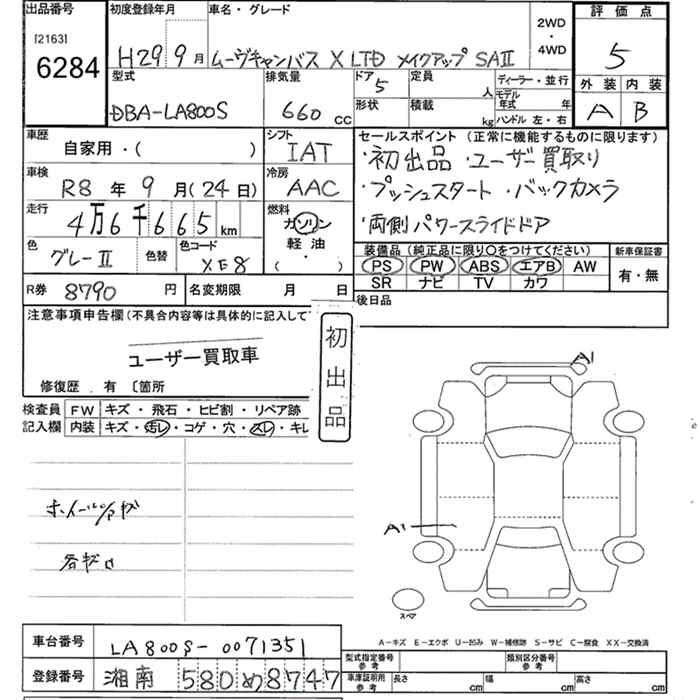 出品番号 初度登録年月 車名・グレード 2WD・4WD 評価点
[2163]
6284
H29 9月 ムーヴキャンバス X LTD メイクアップ SAⅡ 5
型式 排気量 ドア 5 定員 人 ディーラー・並行 外装 内装
DBA-LA800S 660 cc 形状 積載 kg モデル年式 年 ハンドル 左・右 A B
車歴 自家用・( ) シフト IAT セールスポイント (正常に機能するものに限ります)
・初出品 ・ユーザー買取り
車検 R8年 9月(24日) 冷房 AAC ・プッシュスタート ・バックカメラ
走行 4万6千665km 燃料 ガソリン 軽油 ( ) ・両側パワースライドドア
色 グレーⅡ 色替 色コード XE8 装備品 (純正品に限り○をつけてください) 新車保証書
PS PW ABS エアB AW 有・無
SR ナビ TV カワ
R券 8790 円 名変期限 月 日 後日品
注意事項申告欄(不具合内容等は具体的に記入して
ユーザー買取車
初出品
修復歴 有 〔箇所
検査員記入欄 FW キズ・飛石・ヒビ割・リペア跡
内装 キズ・汚レ・コゲ・穴・スレ・キレ
A1
ホイールキズ
A1
各キロ
スペア
A-キズ E-エクボ U-凹み W-補修跡 S-サビ C-腐食 XX-交換済
車台番号 LA800S-0071351
型式指定番号 参考 類別区分番号 参考
登録番号 湘南 580 め 8747
車庫証明用 参考 長さ cm 幅 cm 高さ cm